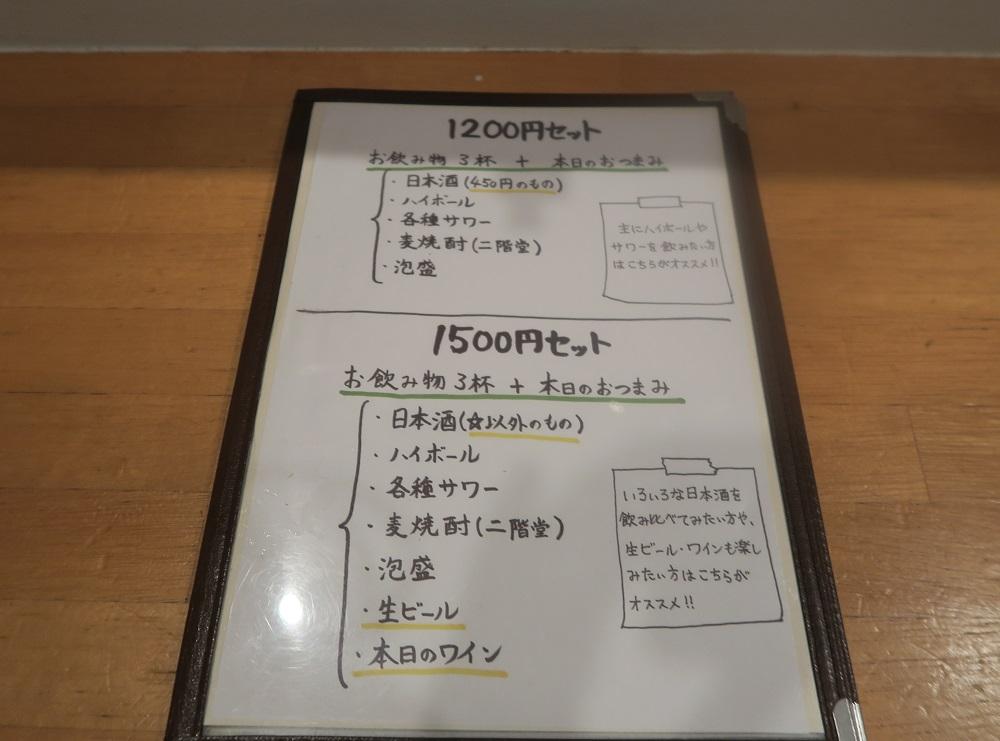 1200円セット
お飲み物 3杯 + 本日のおつまみ
・日本酒(450円のもの)
・ハイボール
・各種サワー
・麦焼酎(二階堂)
・泡盛
主にハイボールや
サワーを飲みたい方
はこちらがオススメ!!
1500円セット
お飲み物 3杯 + 本日のおつまみ
・日本酒(☆以外のもの)
・ハイボール
・各種サワー
・麦焼酎(二階堂)
・泡盛
・生ビール
・本日のワイン
いろいろな日本酒を
飲み比べてみたい方や、
生ビール・ワインも楽し
みたい方はこちらが
オススメ!!